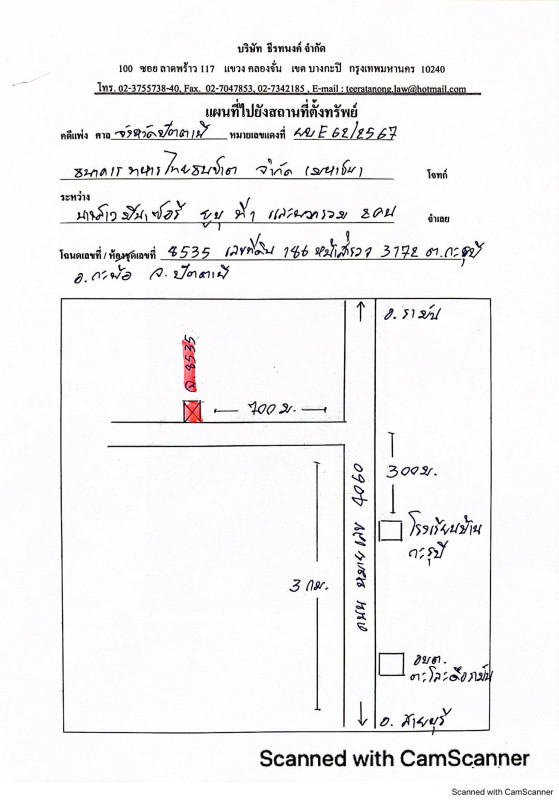 บริษัท ธีรทนงค์ จำกัด
100 ซอย ลาดพร้าว 117 แขวง คลองจั่น เขต บางกะปิ กรุงเทพมหานคร 10240
โทร. 02-3755738-40, Fax. 02-7047853, 02-7342185 , E-mail : teeratanong.law@hotmail.com
แผนที่ไปยังสถานที่ตั้งทรัพย์
คดีแพ่ง ศาล จังหวัดปัตตานี หมายเลขแดงที่ ผบE 62/2567
ธนาคาร ทหารไทยธนชาต จำกัด (มหาชน) โจทก์
ระหว่าง
และพวกรวม 2คน จำเลย
โฉนดเลขที่ / ห้องชุดเลขที่ 8535 เลขที่ดิน 186 หน้าสำรวจ 3172 ต.กะรุบี
อ.กะพ้อ จ.ปัตตานี
อ.รามัน
ฉ.8535
700 ม.
300 ม.
ถนน หมายเลข 4060
โรงเรียนบ้าน
กะรุบี
3 กม.
อบต.
ตะโละดือรามัน
อ. สายบุรี
Scanned with CamScanner
Scanned with CamScanner